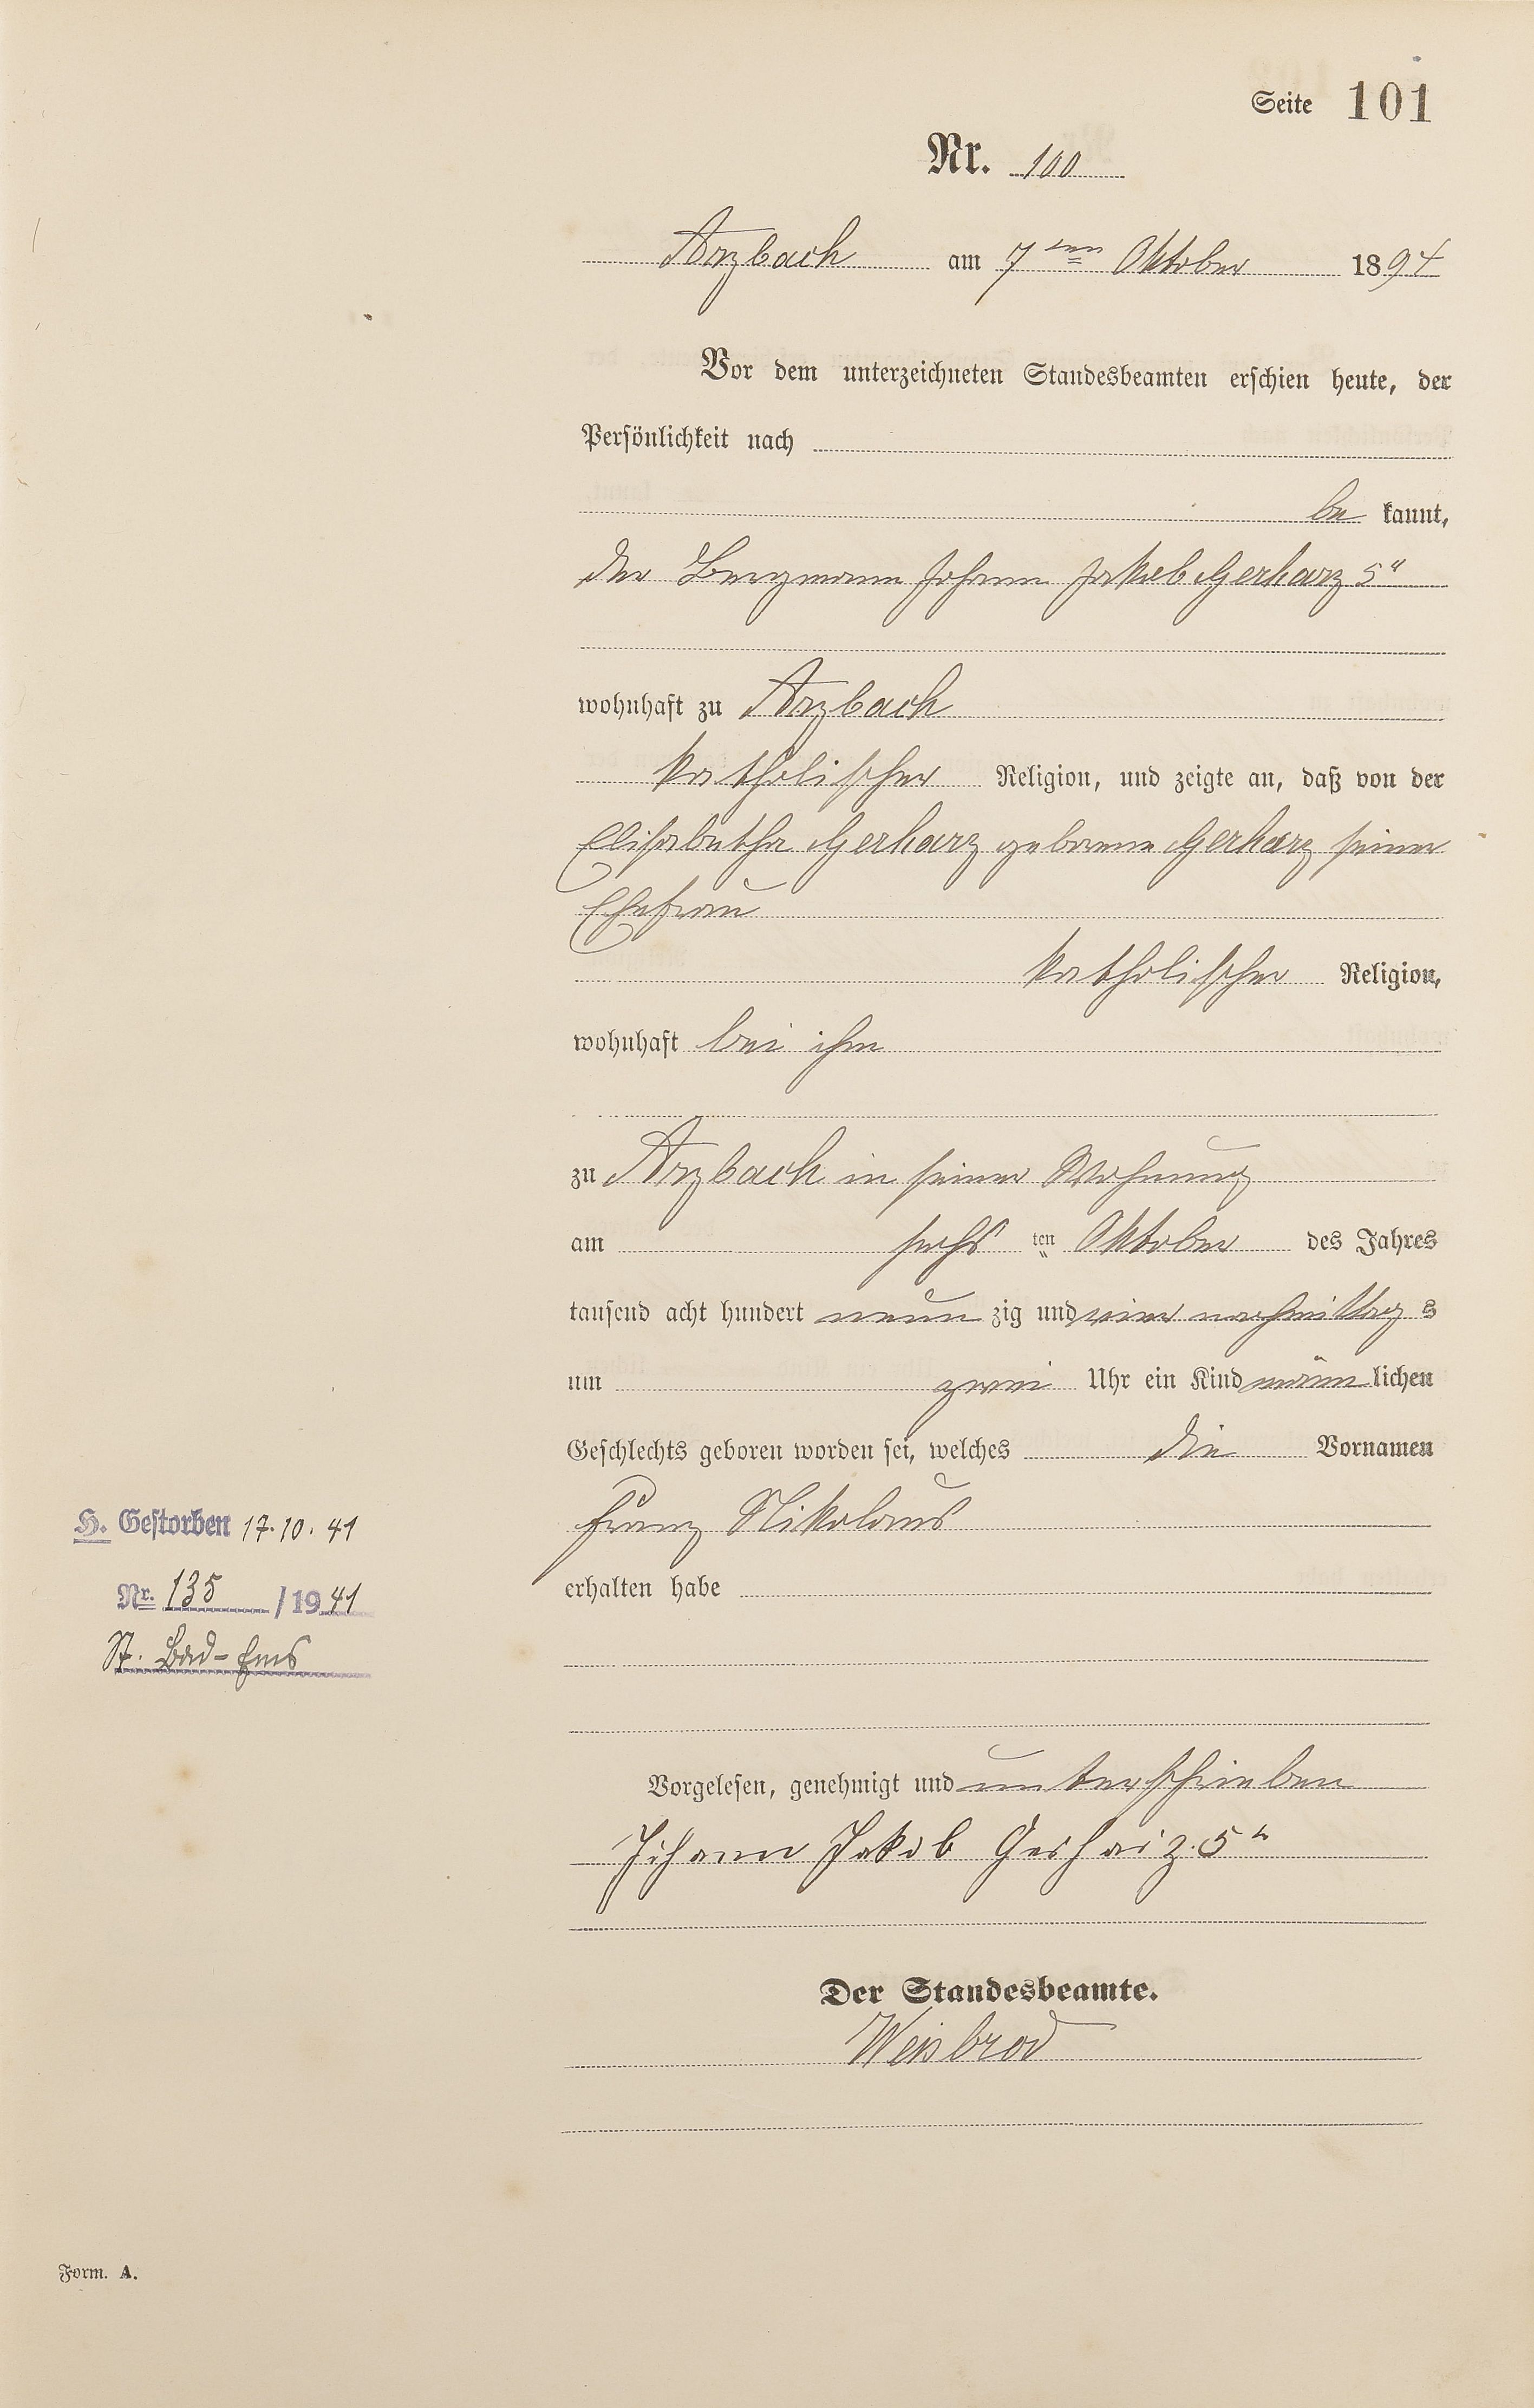 Seite 101
Nr. 100
Arzbach am 7ten Oktober 1894
Vor dem unterzeichneten Standesbeamten erschien heute, der
Persönlichkeit nach
be kannt,
der Bergmann Johann Jakob Gerharz 5"
wohnhaft zu Arzbach
katholischer Religion, und zeigte an, daß von der
Elisabetha Gerharz geborene Gerharz seiner
Ehefrau
katholischer Religion,
wohnhaft bei ihm
zu Arzbach in seiner Wohnung
am sechs ten Oktober des Jahres
tausend acht hundert neun zig und vier nachmittag s
um zwei Uhr ein Kind männ lichen
Geschlechts geboren worden sei, welches die Vornamen
Franz Nikolaus
erhalten habe
H. Gestorben 17.10.41
Nr. 135 /1941
St. Bad-Ems
Vorgelesen, genehmigt und unterschrieben
Johann Jakob Gerharz. 5"
Der Standesbeamte.
Weisbrod
Form. A.